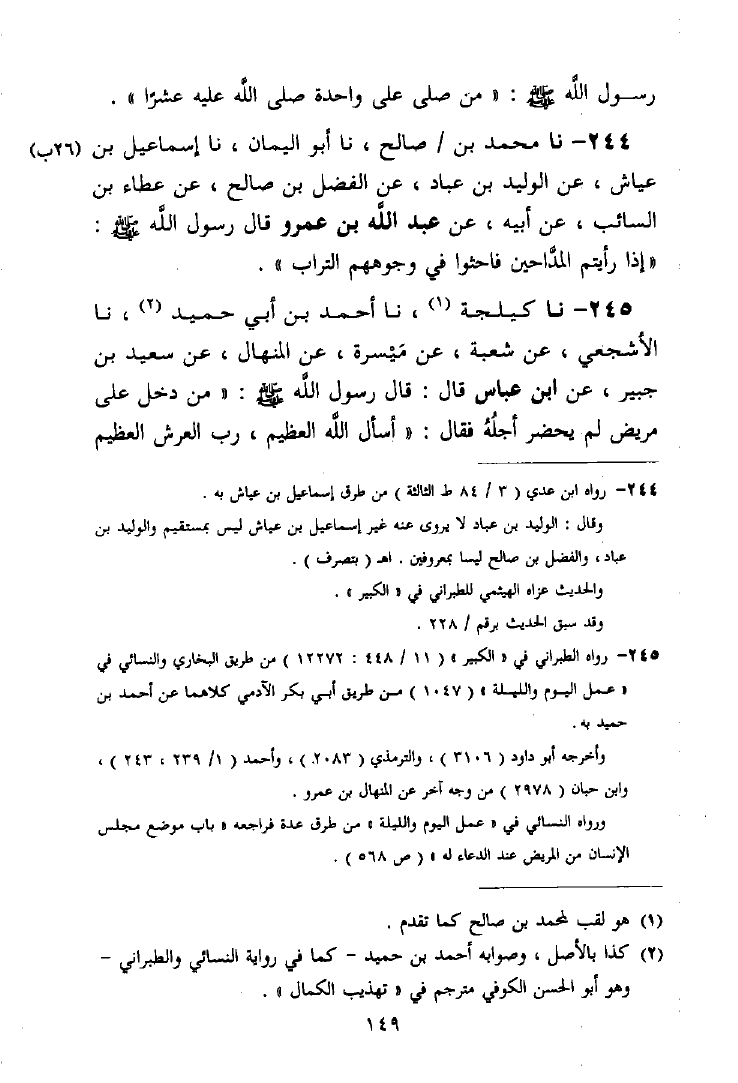 رسول اللَّه ﷺ : « من صلى علي واحدة صلى اللَّه عليه عشرًا » .
٢٤٤- نا محمد بن / صالح ، نا أبو اليمان ، نا إسماعيل بن (٢٦ب)
عياش ، عن الوليد بن عباد ، عن الفضل بن صالح ، عن عطاء بن
السائب ، عن أبيه ، عن عبد اللَّه بن عمرو قال رسول اللَّه ﷺ :
« إذا رأيتم المدَّاحين فاحثوا في وجوههم التراب » .
٢٤٥- نا كيلجة (١) ، نا أحمد بن أبي حميد (٢) ، نا
الأشجعي ، عن شعبة ، عن مَيْسرة ، عن المنهال ، عن سعيد بن
جبير ، عن ابن عباس قال : قال رسول اللَّه ﷺ : « من دخل على
مريض لم يحضر أجلُهُ فقال : « أسأل اللَّه العظيم ، رب العرش العظيم
٢٤٤- رواه ابن عدي ( ٣ / ٨٤ ط الثالثة ) من طرق إسماعيل بن عياش به .
وقال : الوليد بن عباد لا يروى عنه غير إسماعيل بن عياش ليس بمستقيم والوليد بن
عباد ، والفضل بن صالح ليسا بمعروفين . اهـ ( بتصرف ) .
والحديث عزاه الهيثمي للطبراني في « الكبير » .
وقد سبق الحديث برقم / ٢٢٨ .
٢٤٥- رواه الطبراني في « الكبير » ( ١١ / ٤٤٨ : ١٢٢٧٢ ) من طريق البخاري والنسائي في
« عمل اليوم والليلة » ( ١٠٤٧ ) من طريق أبي بكر الآدمي كلاهما عن أحمد بن
حميد به .
وأخرجه أبو داود ( ٣١٠٦ ) ، والترمذي ( ٢٠٨٣ ) ، وأحمد ( ١/ ٢٣٩ ، ٢٤٣ ) ،
وابن حبان ( ٢٩٧٨ ) من وجه آخر عن المنهال بن عمرو .
ورواه النسائي في « عمل اليوم والليلة » من طرق عدة فراجعه « باب موضع مجلس
الإنسان من المريض عند الدعاء له » ( ص ٥٦٨ ) .
(١) هو لقب لمحمد بن صالح كما تقدم .
(٢) كذا بالأصل ، وصوابه أحمد بن حميد - كما في رواية النسائي والطبراني -
وهو أبو الحسن الكوفي مترجم في « تهذيب الكمال » .
١٤٩